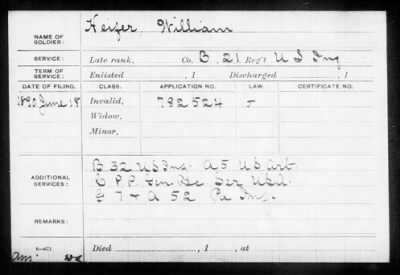 NAME OF SOLDIER: Keizer, William
SERVICE: Late rank, Co. B, 21 Reg't U S Inf
TERM OF SERVICE: Enlisted , 1 Discharged , 1
DATE OF FILING. CLASS. APPLICATION NO. LAW. CERTIFICATE NO.
1890 June 18 Invalid, 782524 -
Widow,
Minor,
B 32 US Inf. A 5 US Art.
ADDITIONAL SERVICES: Gen Ser USA.
G 7 & A 52 Pa Inf.
REMARKS:
Died , 1 , at